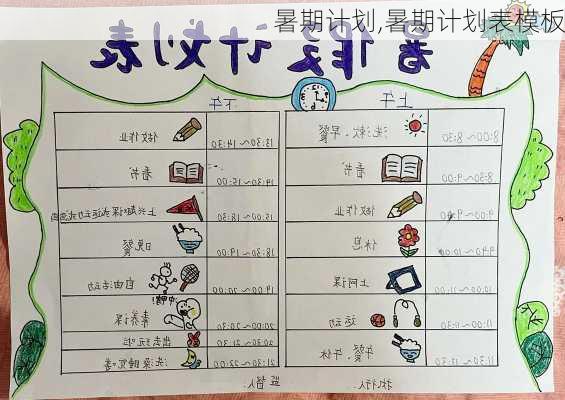 暑期计划,暑期计划表模板
暑假计划表
上午
8:00~8:30 洗漱、早餐
8:30~9:00 看书
9:00~9:40 做作业
9:40~10:00 休息
10:00~11:00 上网课
11:00~11:30 运动
11:30~12:30 午餐、午休
下午
13:30~14:30 做作业
14:30~15:00 看书
15:00~18:30 上兴趣课或运动或画画
18:30~19:00 晚餐
19:00~20:00 自由活动
20:00~20:30 素养课
20:30~21:30 出去玩啦
21:30~22:00 洗澡睡觉
执行人:
监督人: